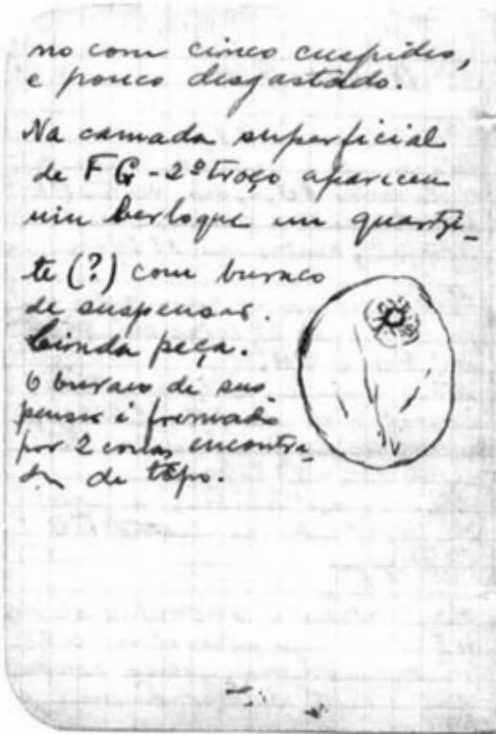 no com cinco cuspides,
e pouco desgastado.
Na camada superficial
de FG - 2º troço apareceu
um berloque em quartzi-
te (?) com buraco
de suspensão.
Linda peça.
O buraco de sus
pensão é formado
por 2 cones encontra-
dos de topo.